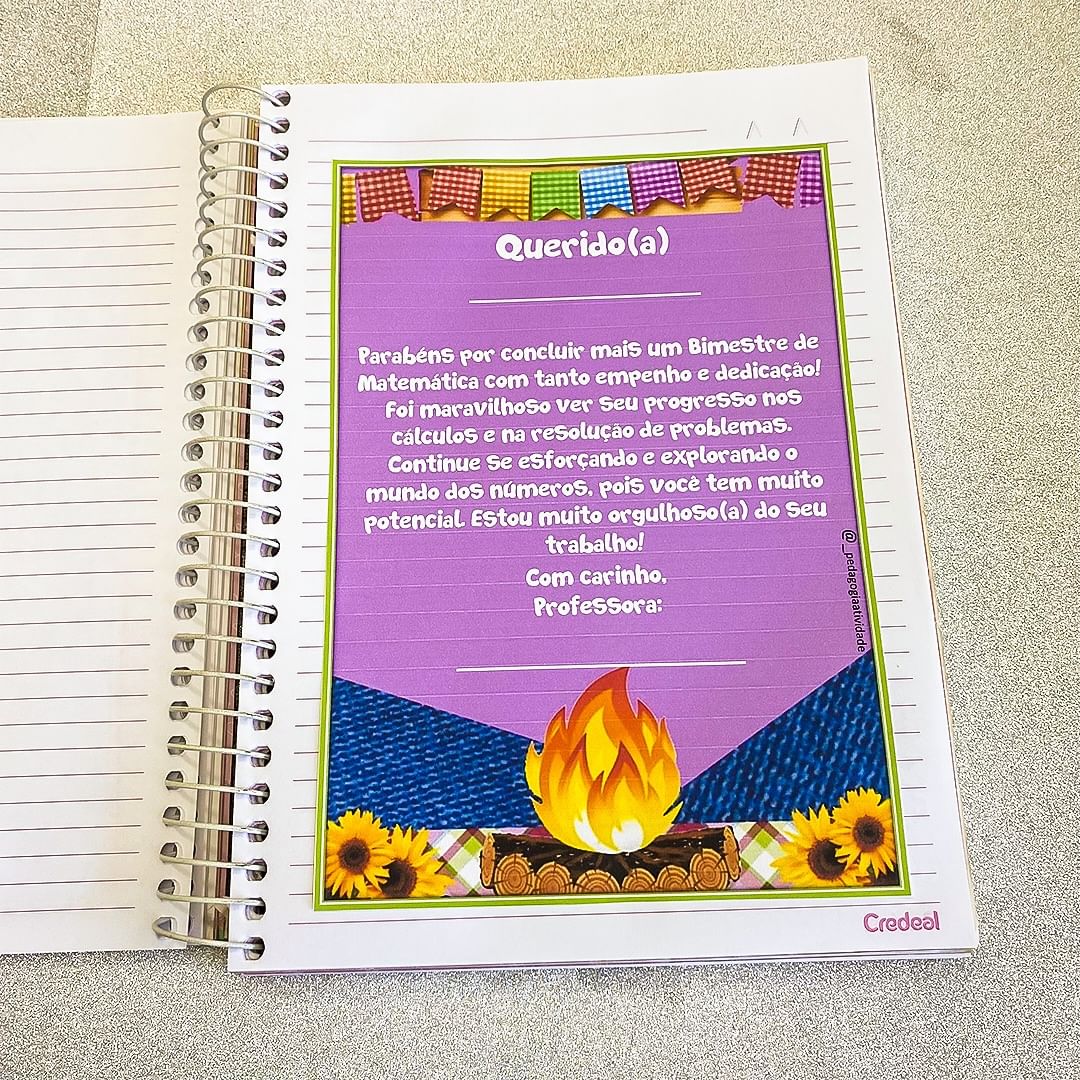 Querido(a)
Parabéns por concluir mais um Bimestre de
Matemática com tanto empenho e dedicação!
Foi maravilhoso ver seu progresso nos
cálculos e na resolução de problemas.
Continue se esforçando e explorando o
mundo dos números, pois você tem muito
potencial. Estou muito orgulhoso(a) do seu
trabalho!
Com carinho,
Professora:
@_pedagogiaatividade
Credeal